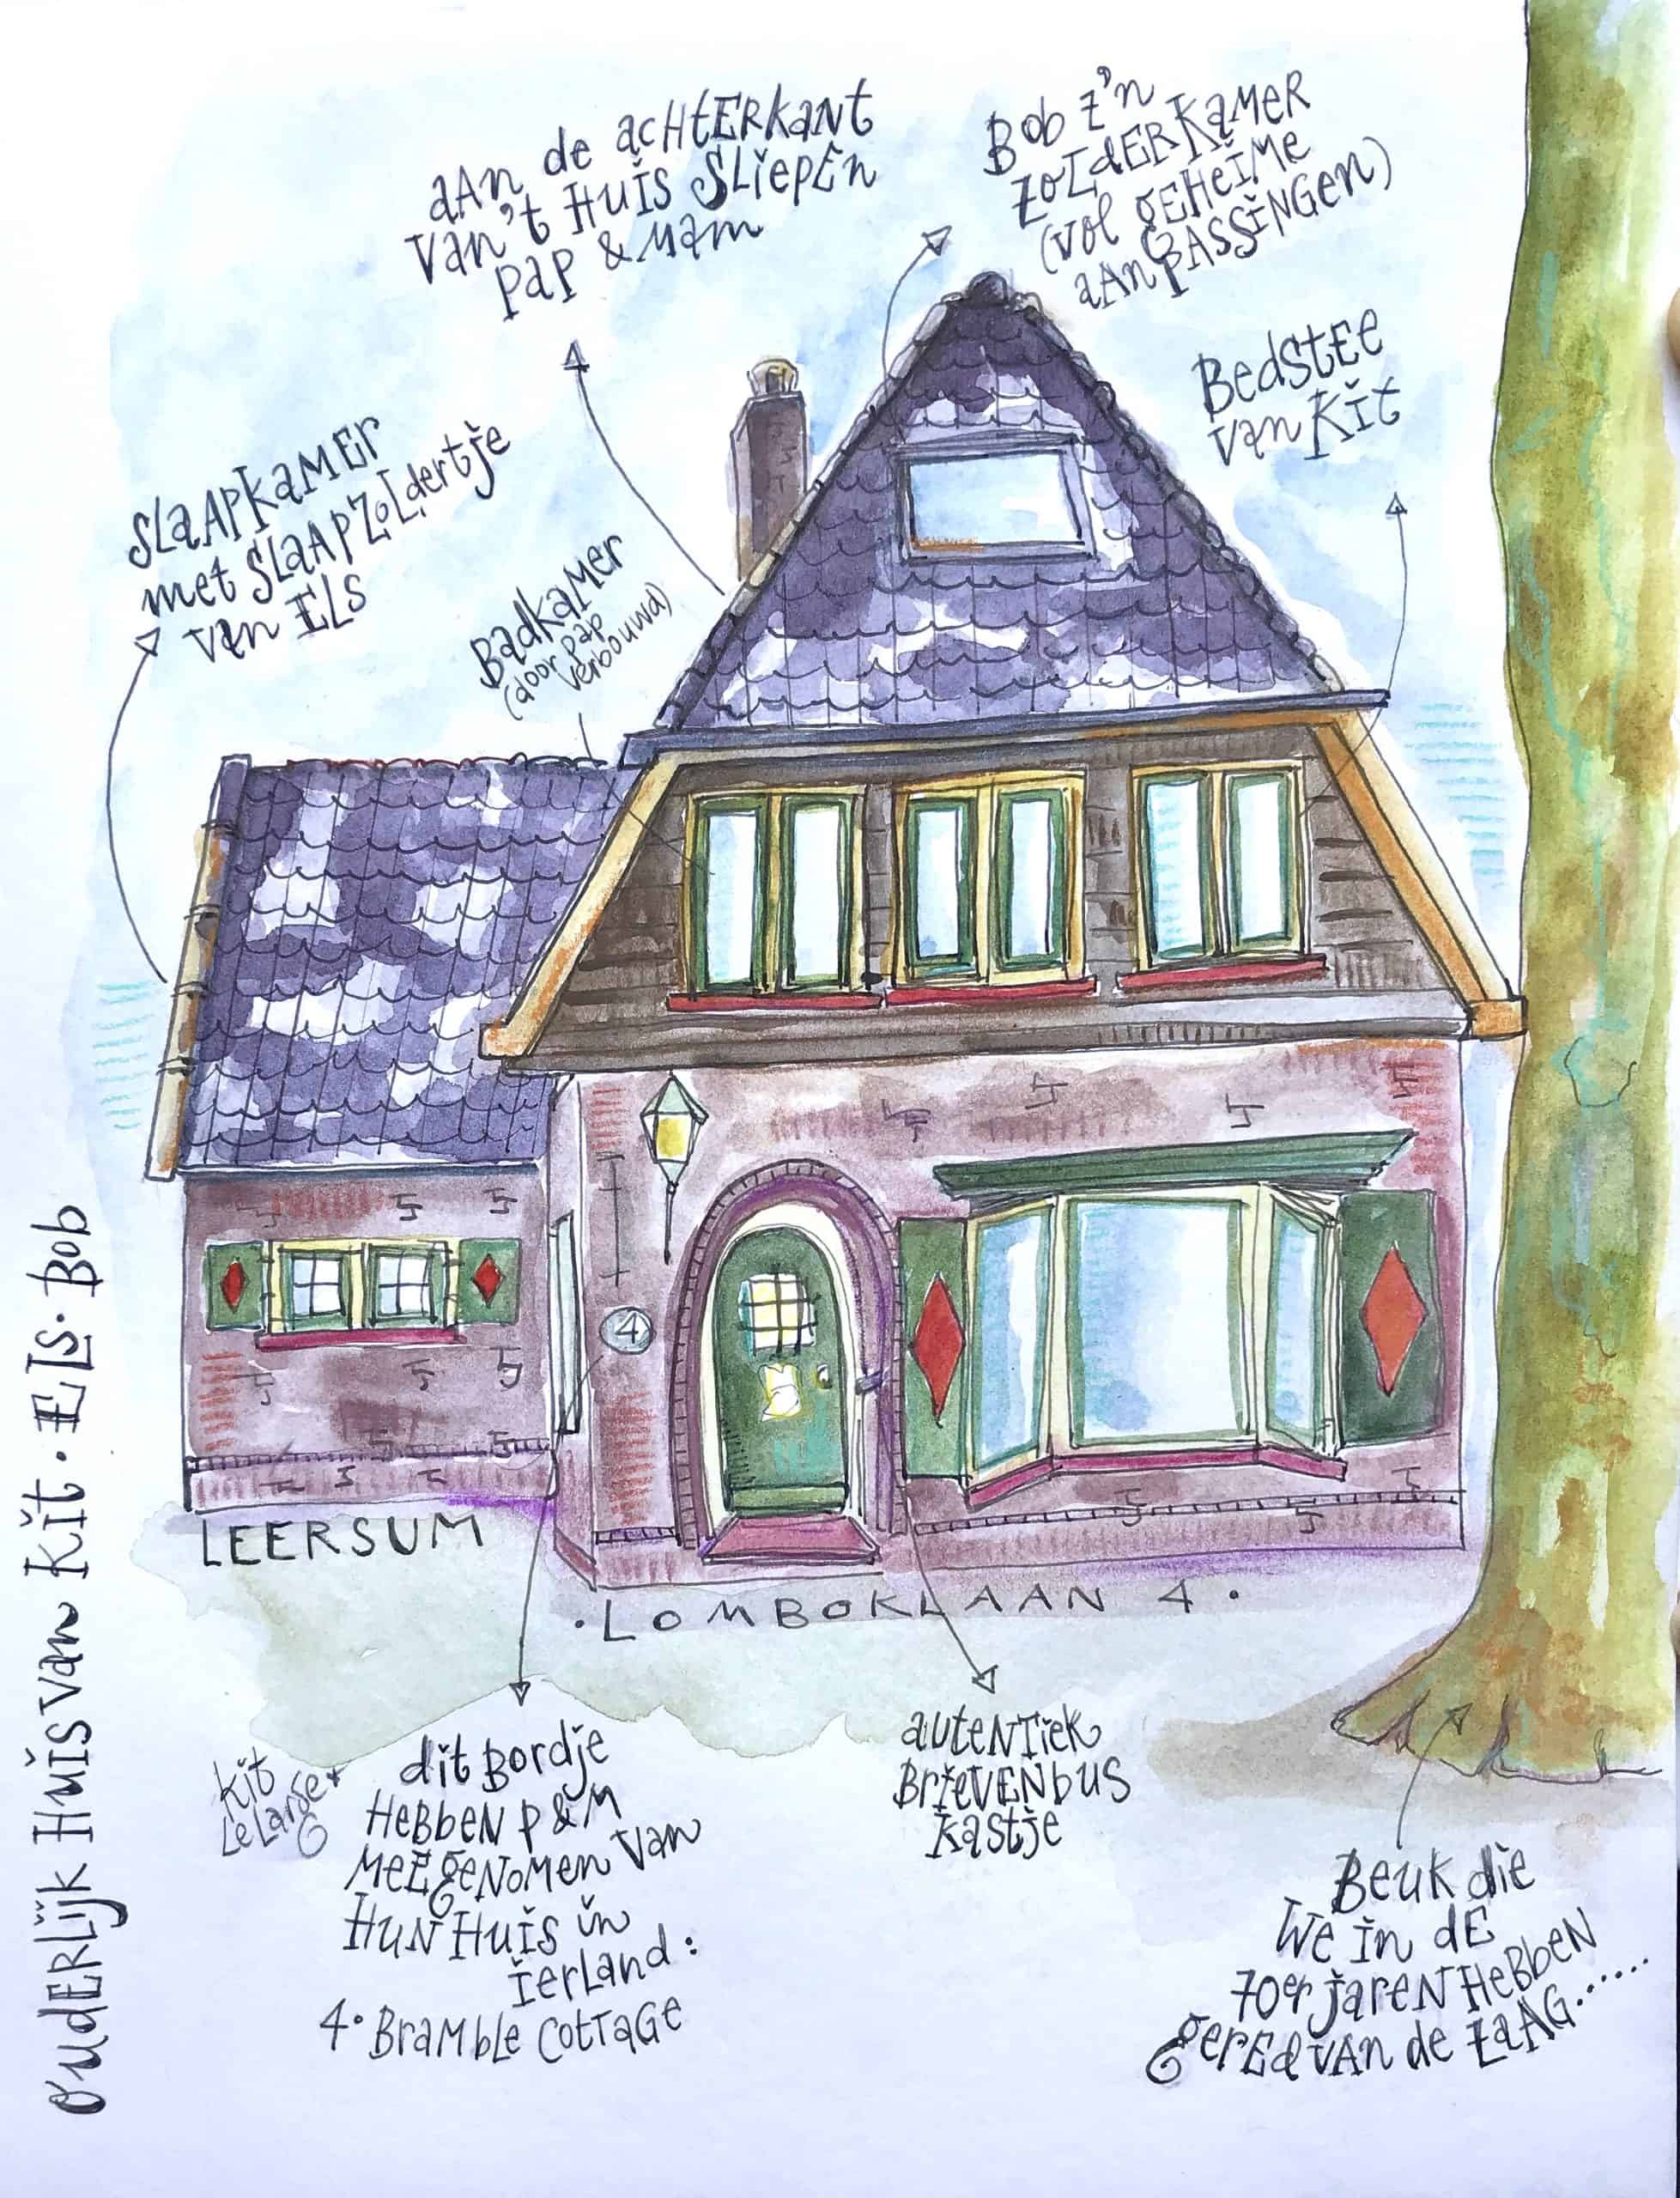 aan de achterkant
van 't huis sliepen
pap & mam
Bob z'n
zolderkamer
(vol geheime
aanpassingen)
Bedstee
van Kit
slaapkamer
met slaapzoldertje
van Els
Badkamer
(door pap
verbouwd)
4
LEERSUM
·LOMBOKLAAN 4·
ouderlijk Huis van Kit·Els·Bob
Kit
dit Bordje
hebben P & M
meegenomen van
hun Huis in
ierland:
4·Bramble Cottage
autentiek
Brievenbus
kastje
Beuk die
we in de
70er jaren hebben
gered van de zaag.....